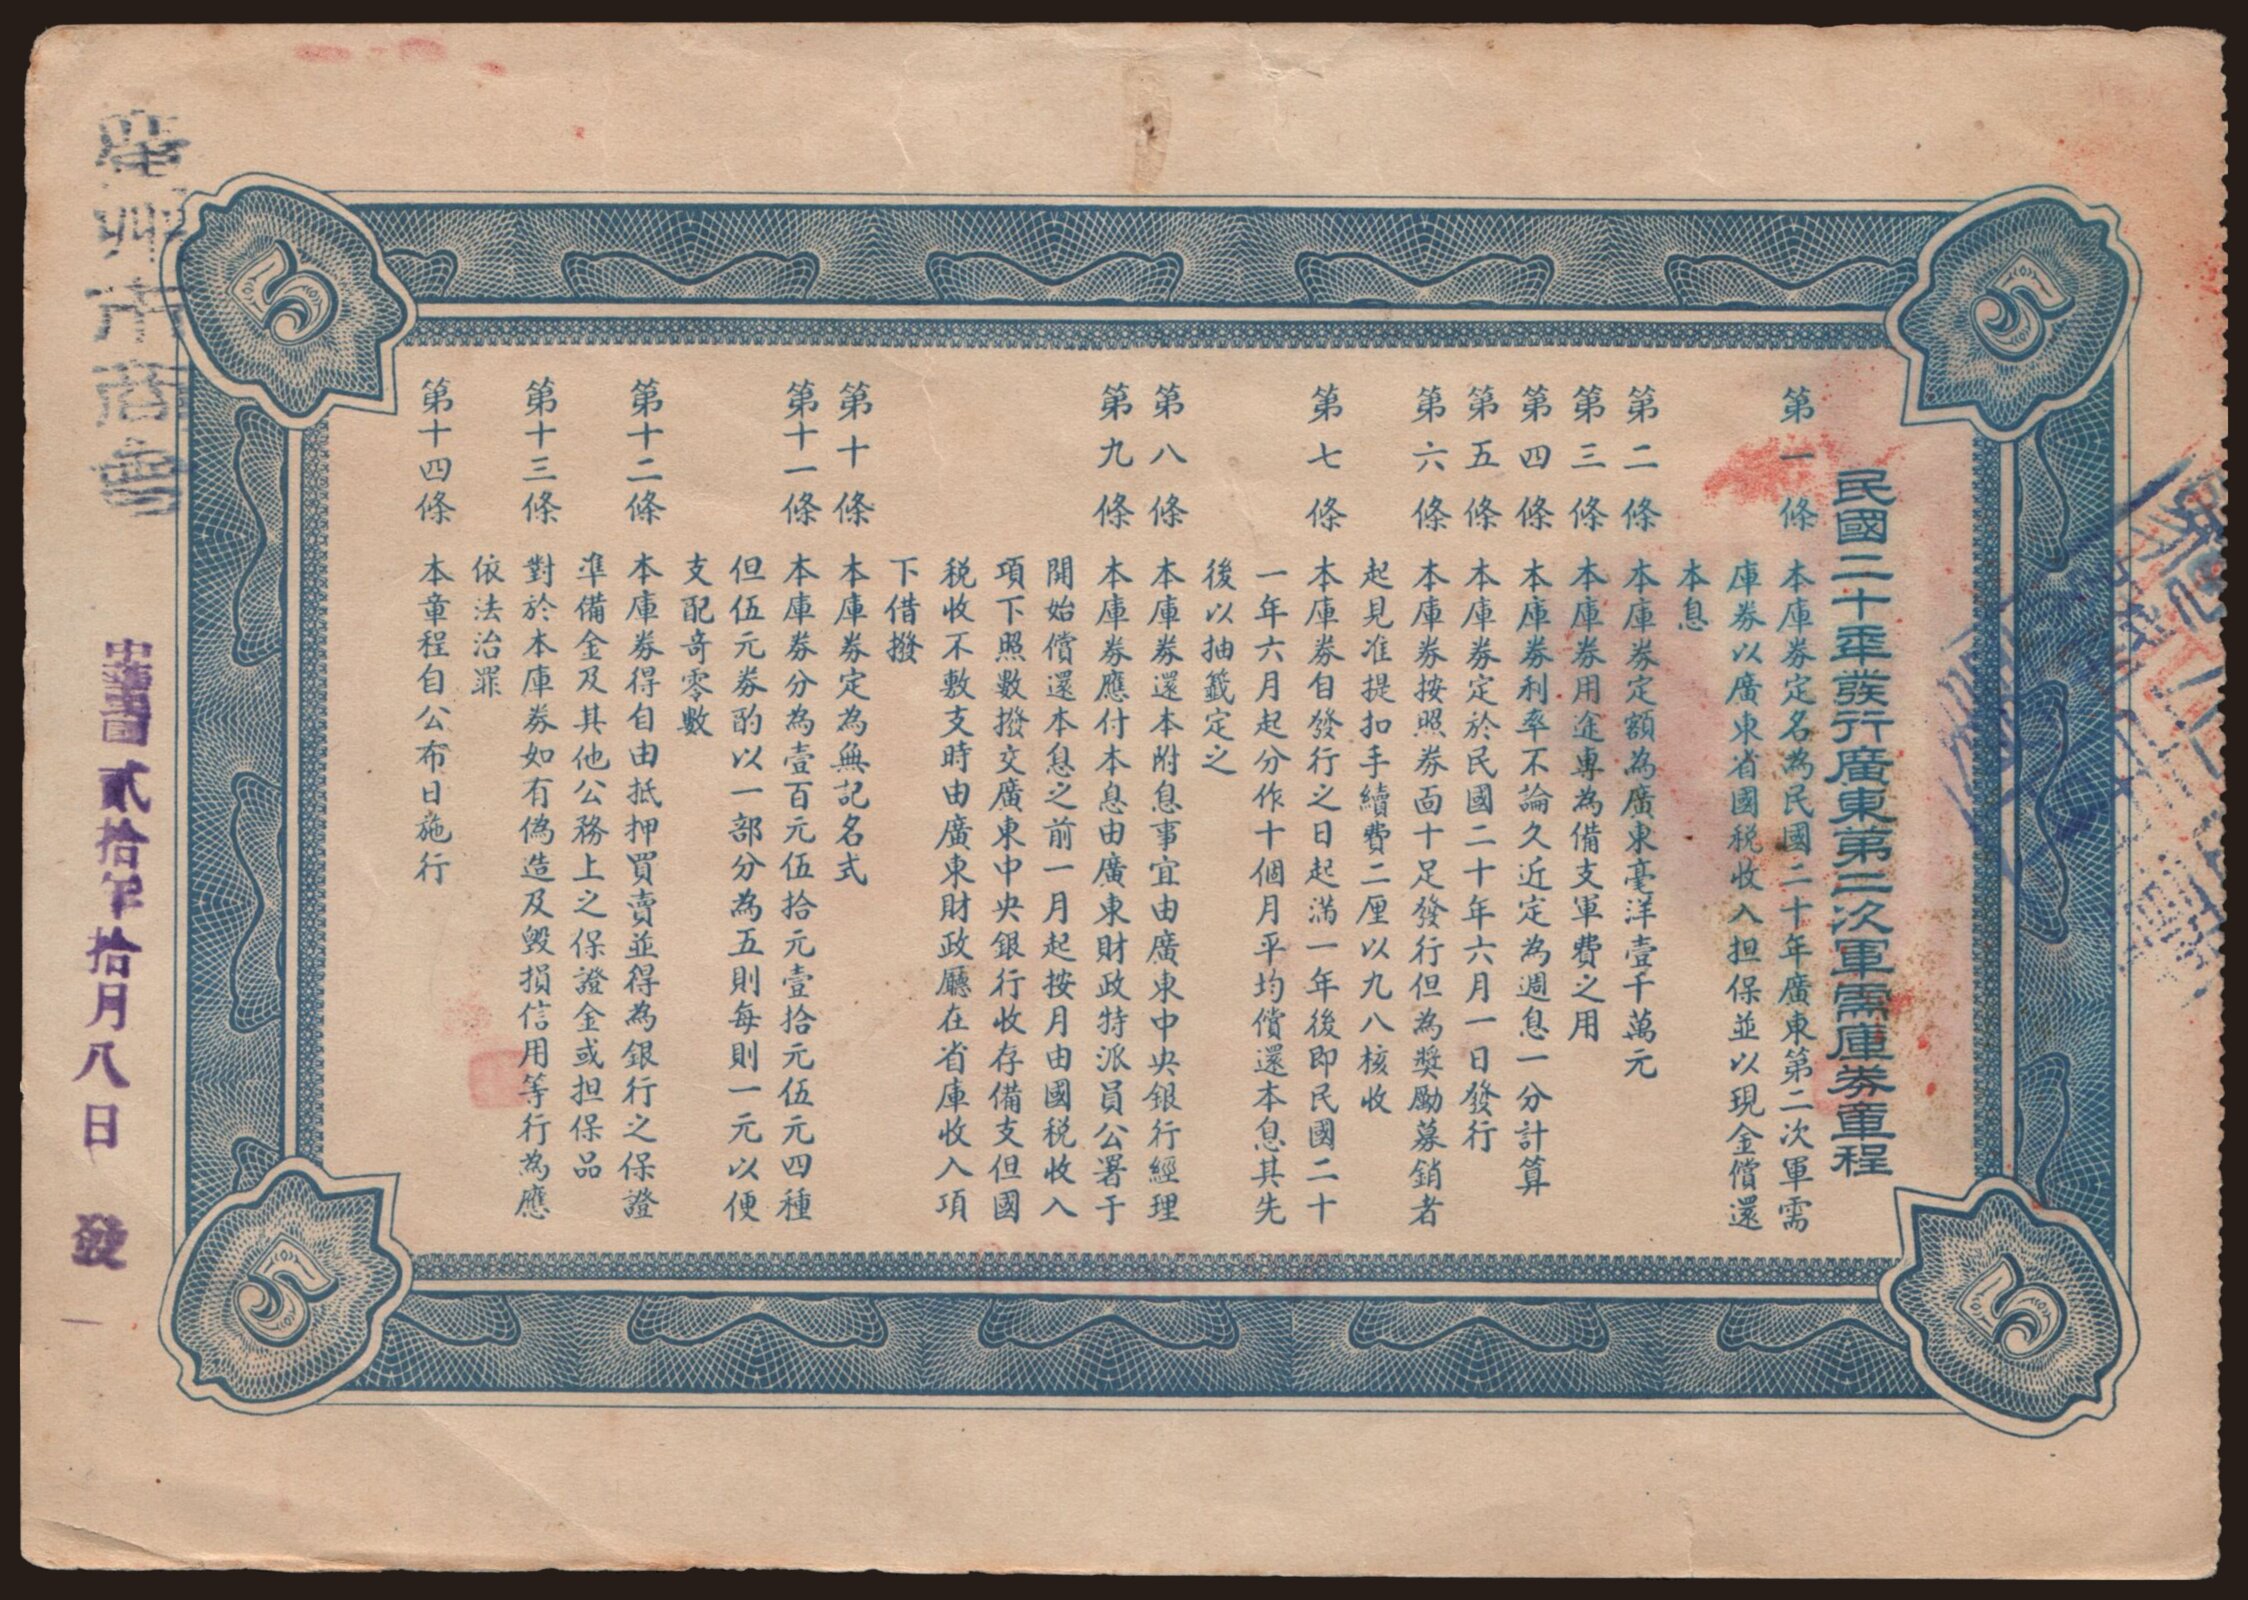 民國二十年發行廣東第二次軍需庫券章程
第一條 本庫券定名為民國二十年廣東第二次軍需
庫券以廣東省國稅收入担保並以現金償還
本息
第二條 本庫券定額為廣東毫洋壹千萬元
第三條 本庫券用途專為備支軍費之用
第四條 本庫券利率不論久近定為週息一分計算
第五條 本庫券定於民國二十年六月一日發行
第六條 本庫券按照券面十足發行但為獎勵募銷者
起見准提扣手續費二厘以九八核收
第七條 本庫券自發行之日起滿一年後即民國二十
一年六月起分作十個月平均償還本息其先
後以抽籤定之
第八條 本庫券還本附息事宜由廣東中央銀行經理
第九條 本庫券應付本息由廣東財政特派員公署于
開始償還本息之前一月起按月由國稅收入
項下照數撥交廣東中央銀行收存備支但國
稅收不敷支時由廣東財政廳在省庫收入項
下借撥
第十條 本庫券定為無記名式
第十一條 本庫券分為壹百元伍拾元壹拾元伍元四種
但伍元券酌以一部分為五則每則一元以便
支配奇零數
第十二條 本庫券得自由抵押買賣並得為銀行之保證
準備金及其他公務上之保證金或担保品
第十三條 對於本庫券如有偽造及毀損信用等行為應
依法治罪
第十四條 本章程自公布日施行
5
5
5
5
市商會
中華民國貳拾年拾月八日 發